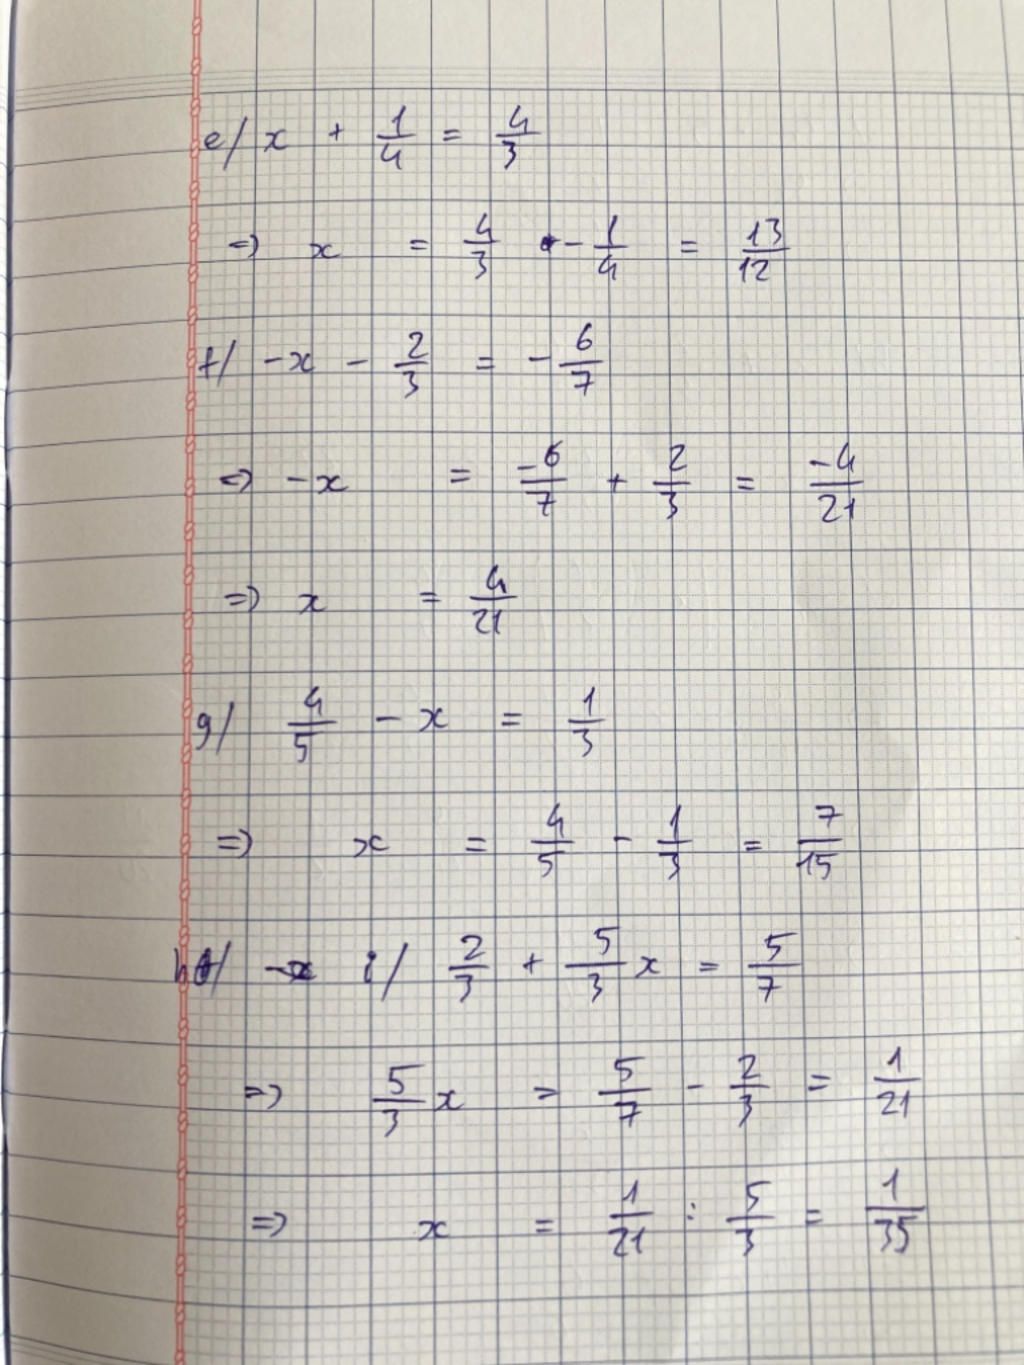 e/ x + 1/4 = 4/3
=> x = 4/3 - 1/4 = 13/12
f/ -x - 2/3 = -6/7
=> -x = -6/7 + 2/3 = -4/21
=> x = 4/21
g/ 4/5 - x = 1/3
=> x = 4/5 - 1/3 = 7/15
i/ 2/3 + 5/3 x = 5/7
=> 5/3 x = 5/7 - 2/3 = 1/21
=> x = 1/21 : 5/3 = 1/35